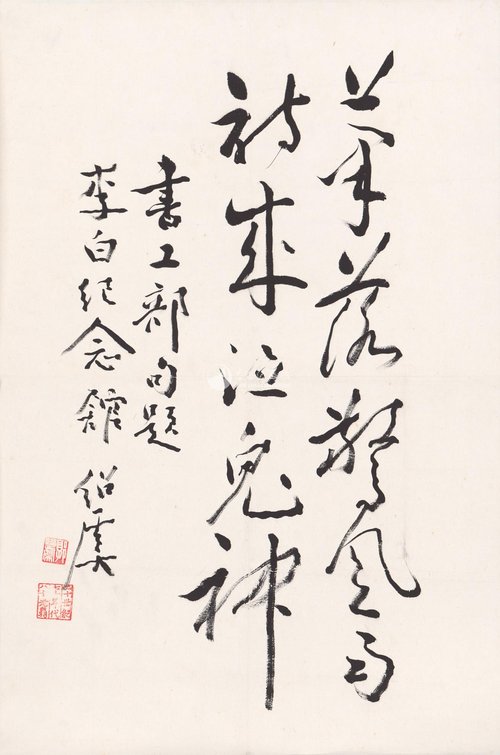 筆落驚風雨
詩成泣鬼神
書工部句題
李白纪念館 绍虞